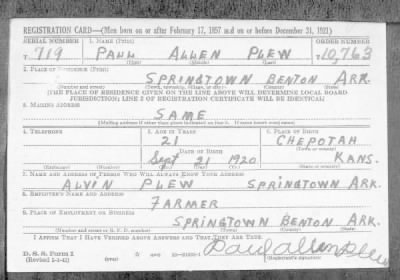 REGISTRATION CARD—(Men born on or after February 17, 1897 and on or before December 31, 1921)
SERIAL NUMBER 1. NAME (Print) ORDER NUMBER
T 719 PAUL ALLEN PLEW T10,763
(First) (Middle) (Last)
2. PLACE OF RESIDENCE (Print)
SPRINGTOWN BENTON ARK.
(Number and street) (Town, township, village, or city) (County) (State)
[THE PLACE OF RESIDENCE GIVEN ON THE LINE ABOVE WILL DETERMINE LOCAL BOARD
JURISDICTION; LINE 2 OF REGISTRATION CERTIFICATE WILL BE IDENTICAL]
3. MAILING ADDRESS
SAME
[Mailing address if other than place indicated on line 2. If same insert word same]
4. TELEPHONE 5. AGE IN YEARS 6. PLACE OF BIRTH
21 CHEPOTAH
DATE OF BIRTH (Town or county)
Sept 21 1920 KANS.
(Exchange) (Number) (Mo.) (Day) (Yr.) (State or country)
7. NAME AND ADDRESS OF PERSON WHO WILL ALWAYS KNOW YOUR ADDRESS
ALVIN PLEW SPRINGTOWN ARK.
8. EMPLOYER'S NAME AND ADDRESS
FARMER
9. PLACE OF EMPLOYMENT OR BUSINESS
SPRINGTOWN BENTON ARK.
(Number and street or R. F. D. number) (Town) (County) (State)
I AFFIRM THAT I HAVE VERIFIED ABOVE ANSWERS AND THAT THEY ARE TRUE.
D. S. S. Form 1
(Revised 1-1-42) (over)
Paul Allen Plew
(Registrant's signature)